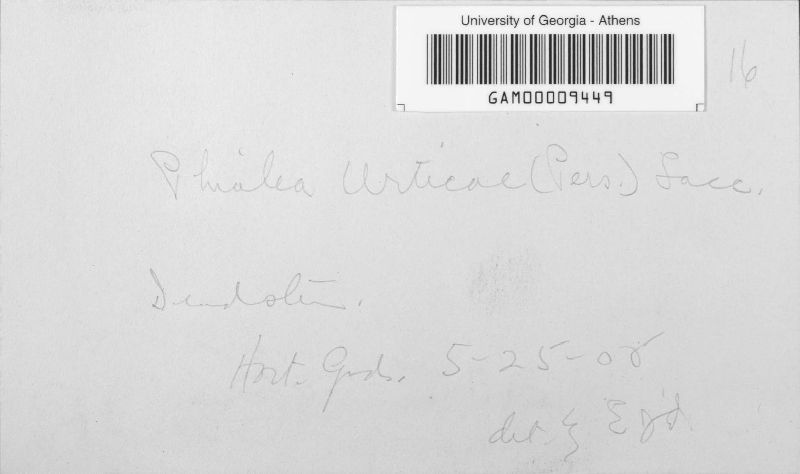 University of Georgia - Athens
GAM00009449
16
Phialea Urticae (Pers.) Sacc.
Hort. Gnds. 5-25-08
det.